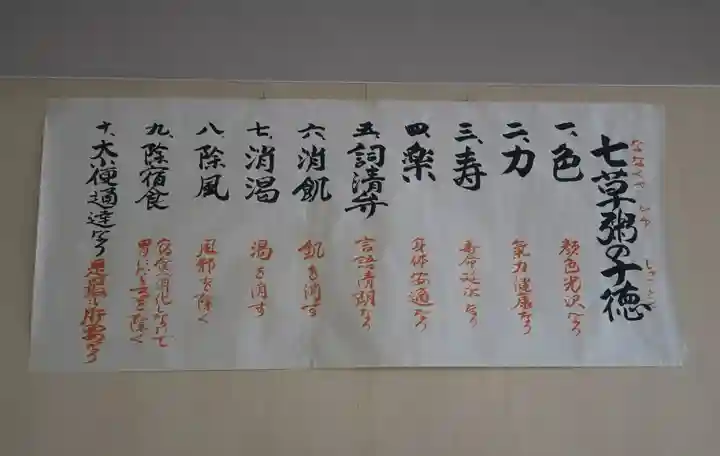 七草粥の十徳
ななくさ
一、色
顔色光沢なり
二、力
氣力健康なり
三、寿
寿命延次なり
四、楽
身体安適なり
五、詞清弁
言語清朗なり
六、消飢
飢を消す
七、消渇
渇を消す
八、除風
風邪を除く
九、除宿食
宿食消化しなりて
胃にたまを除く
十、大小便通達なり